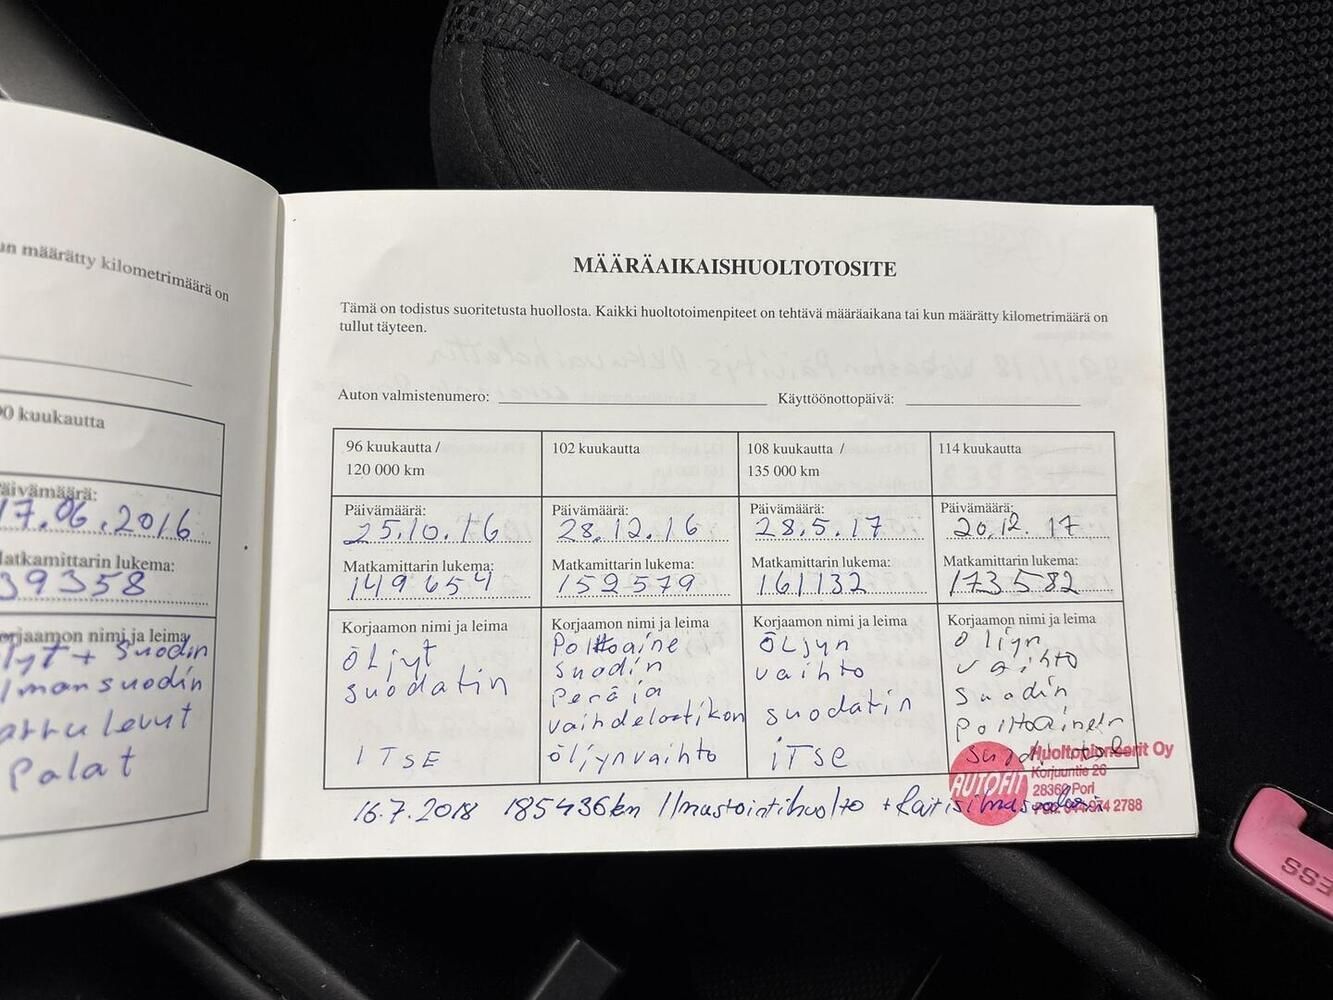 un määrätty kilometrimäärä on
90 kuukautta
Päivämäärä:
17.06.2016
Matkamittarin lukema:
39358
Korjaamon nimi ja leima
öljyt + Suodin
Ilmansuodin
Jarrulevyt
Palat
MÄÄRÄAIKAISHUOLTOTOSITE
Tämä on todistus suoritetusta huollosta. Kaikki huoltotoimenpiteet on tehtävä määräaikana tai kun määrätty kilometrimäärä on
tullut täyteen.
Auton valmistenumero: Käyttöönottopäivä:
96 kuukautta /
120 000 km
Päivämäärä:
25.10.16
Matkamittarin lukema:
149654
Korjaamon nimi ja leima
Öljyt
suodatin
ITSE
102 kuukautta
Päivämäärä:
28.12.16
Matkamittarin lukema:
152579
Korjaamon nimi ja leima
Polttoaine
suodin
Perä ja
vaihdelaatikon
öljynvaihto
108 kuukautta /
135 000 km
Päivämäärä:
28.5.17
Matkamittarin lukema:
161132
Korjaamon nimi ja leima
Öljyn
vaihto
suodatin
iTse
114 kuukautta
Päivämäärä:
20.12.17
Matkamittarin lukema:
173582
Korjaamon nimi ja leima
Öljyn
vaihto
suodin
polttoaineen
AUTOFIT
Huoltopioneerit Oy
Korjuuntie 26
28360 Pori
2788
16.7.2018 185436km Ilmastointihuolto + Raitisilmasuodatin
ESS